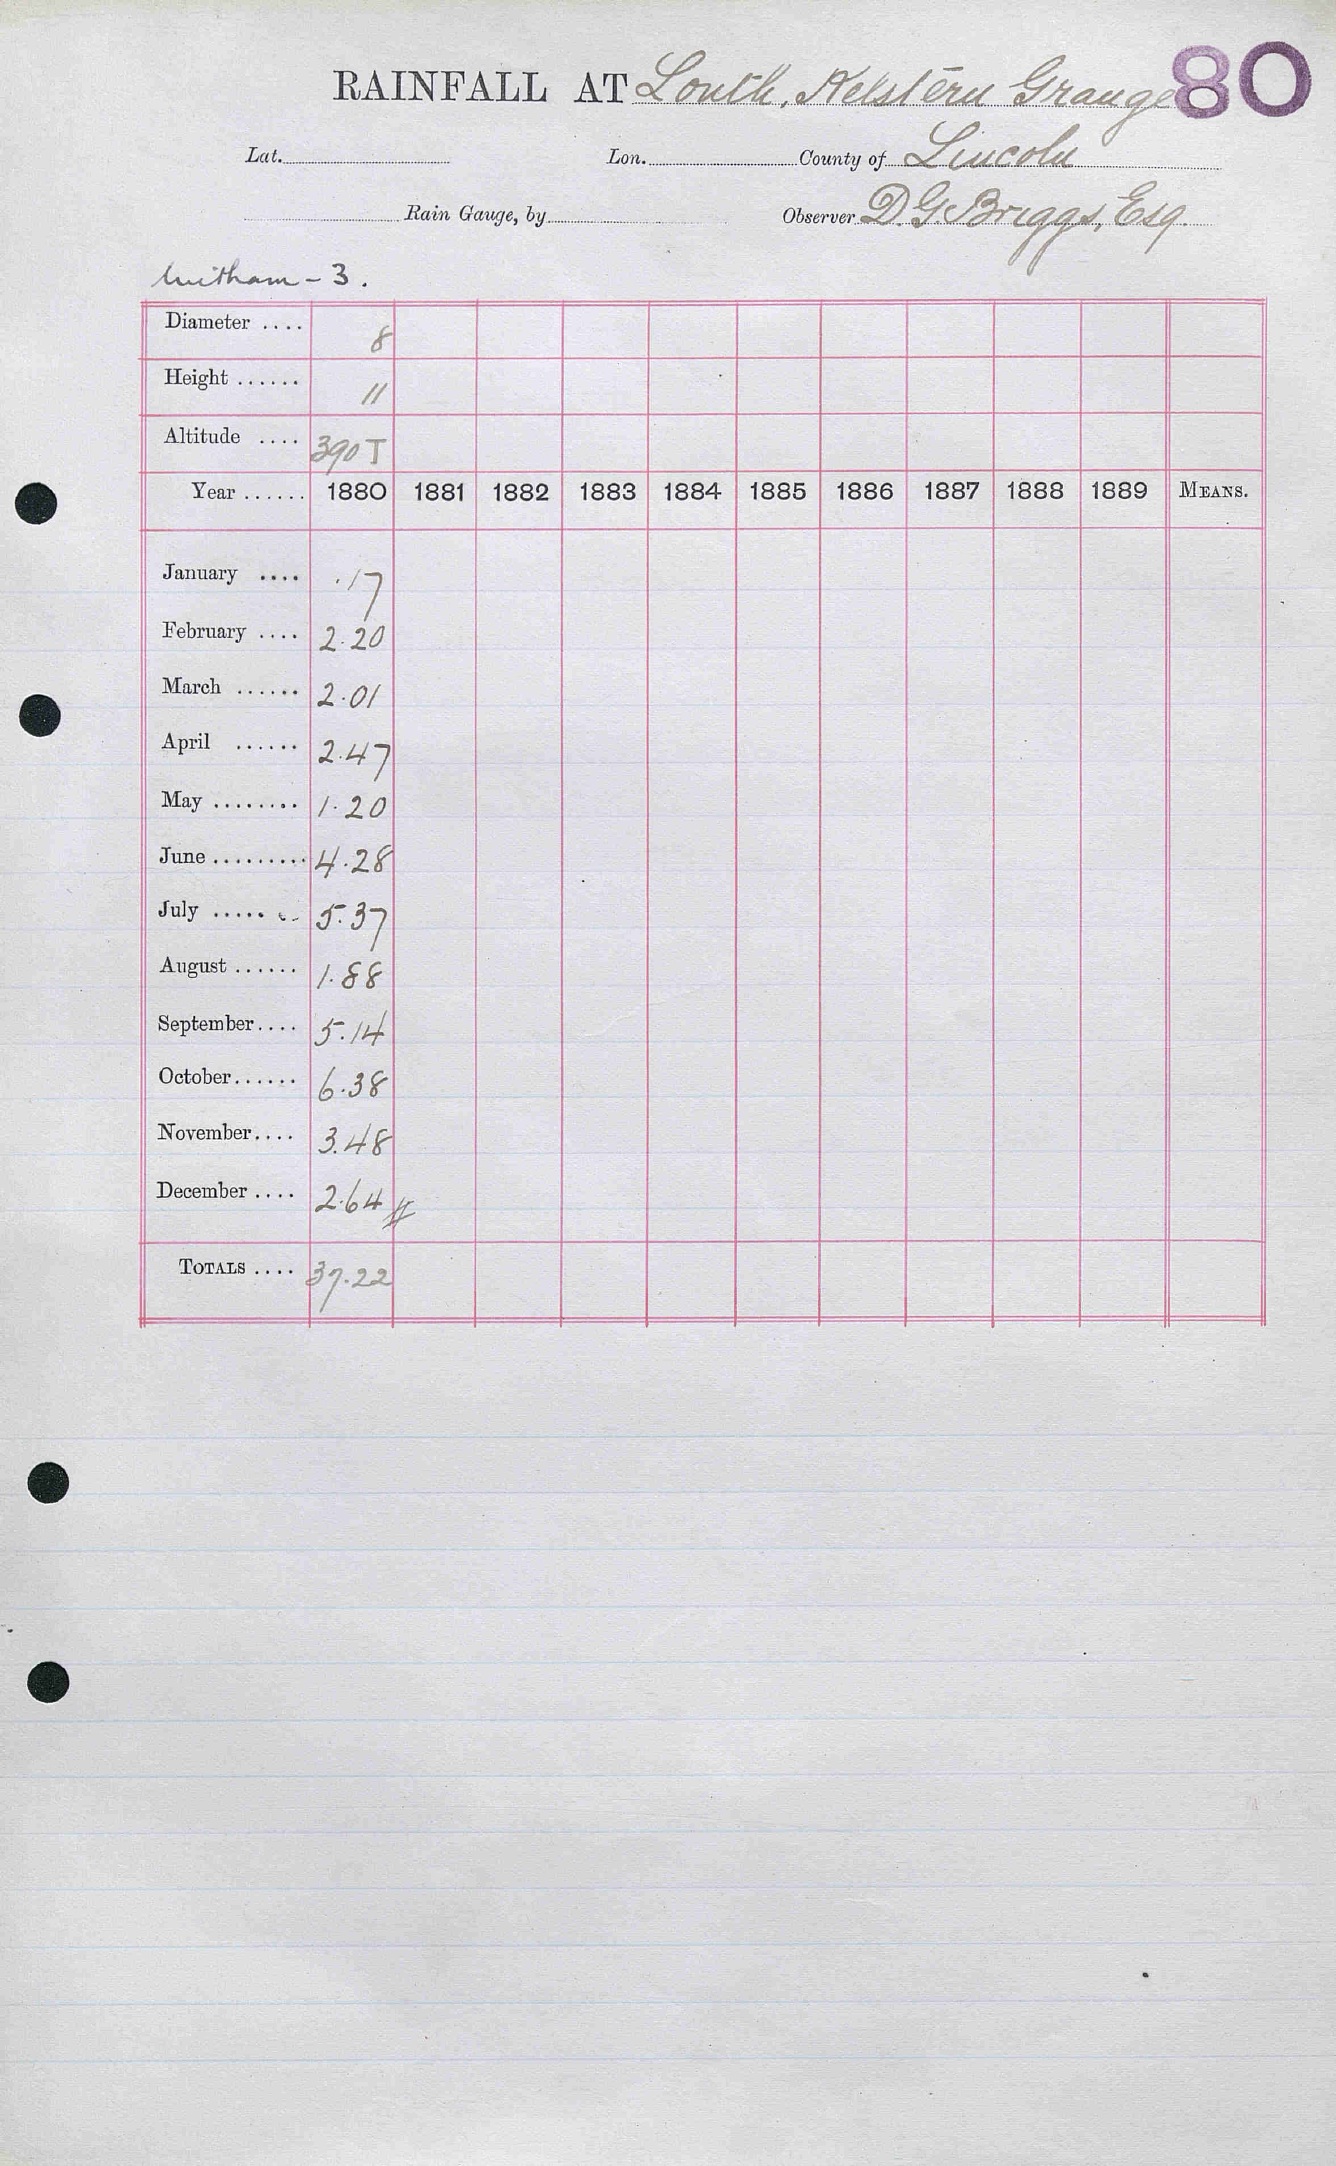 RAINFALL AT Louth, Kelstern Grange 80
Lat. Lon. County of Lincoln
Rain Gauge, by Observer D. G. Briggs, Esq.
Witham - 3.
Diameter .... 8
Height ...... 11
Altitude .... 390 T
Year ...... 1880 1881 1882 1883 1884 1885 1886 1887 1888 1889 MEANS.
January .... .17
February .... 2.20
March ...... 2.01
April ...... 2.47
May ........ 1.20
June ......... 4.28
July ..... 5.37
August ...... 1.88
September.... 5.14
October...... 6.38
November.... 3.48
December .... 2.64
TOTALS .... 37.22